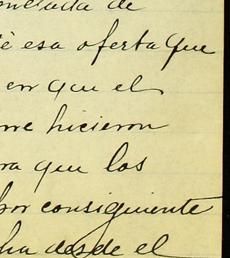 de
esa oferta que
en que el
me hicieron
ra que los
por consiguiente
ha desde el